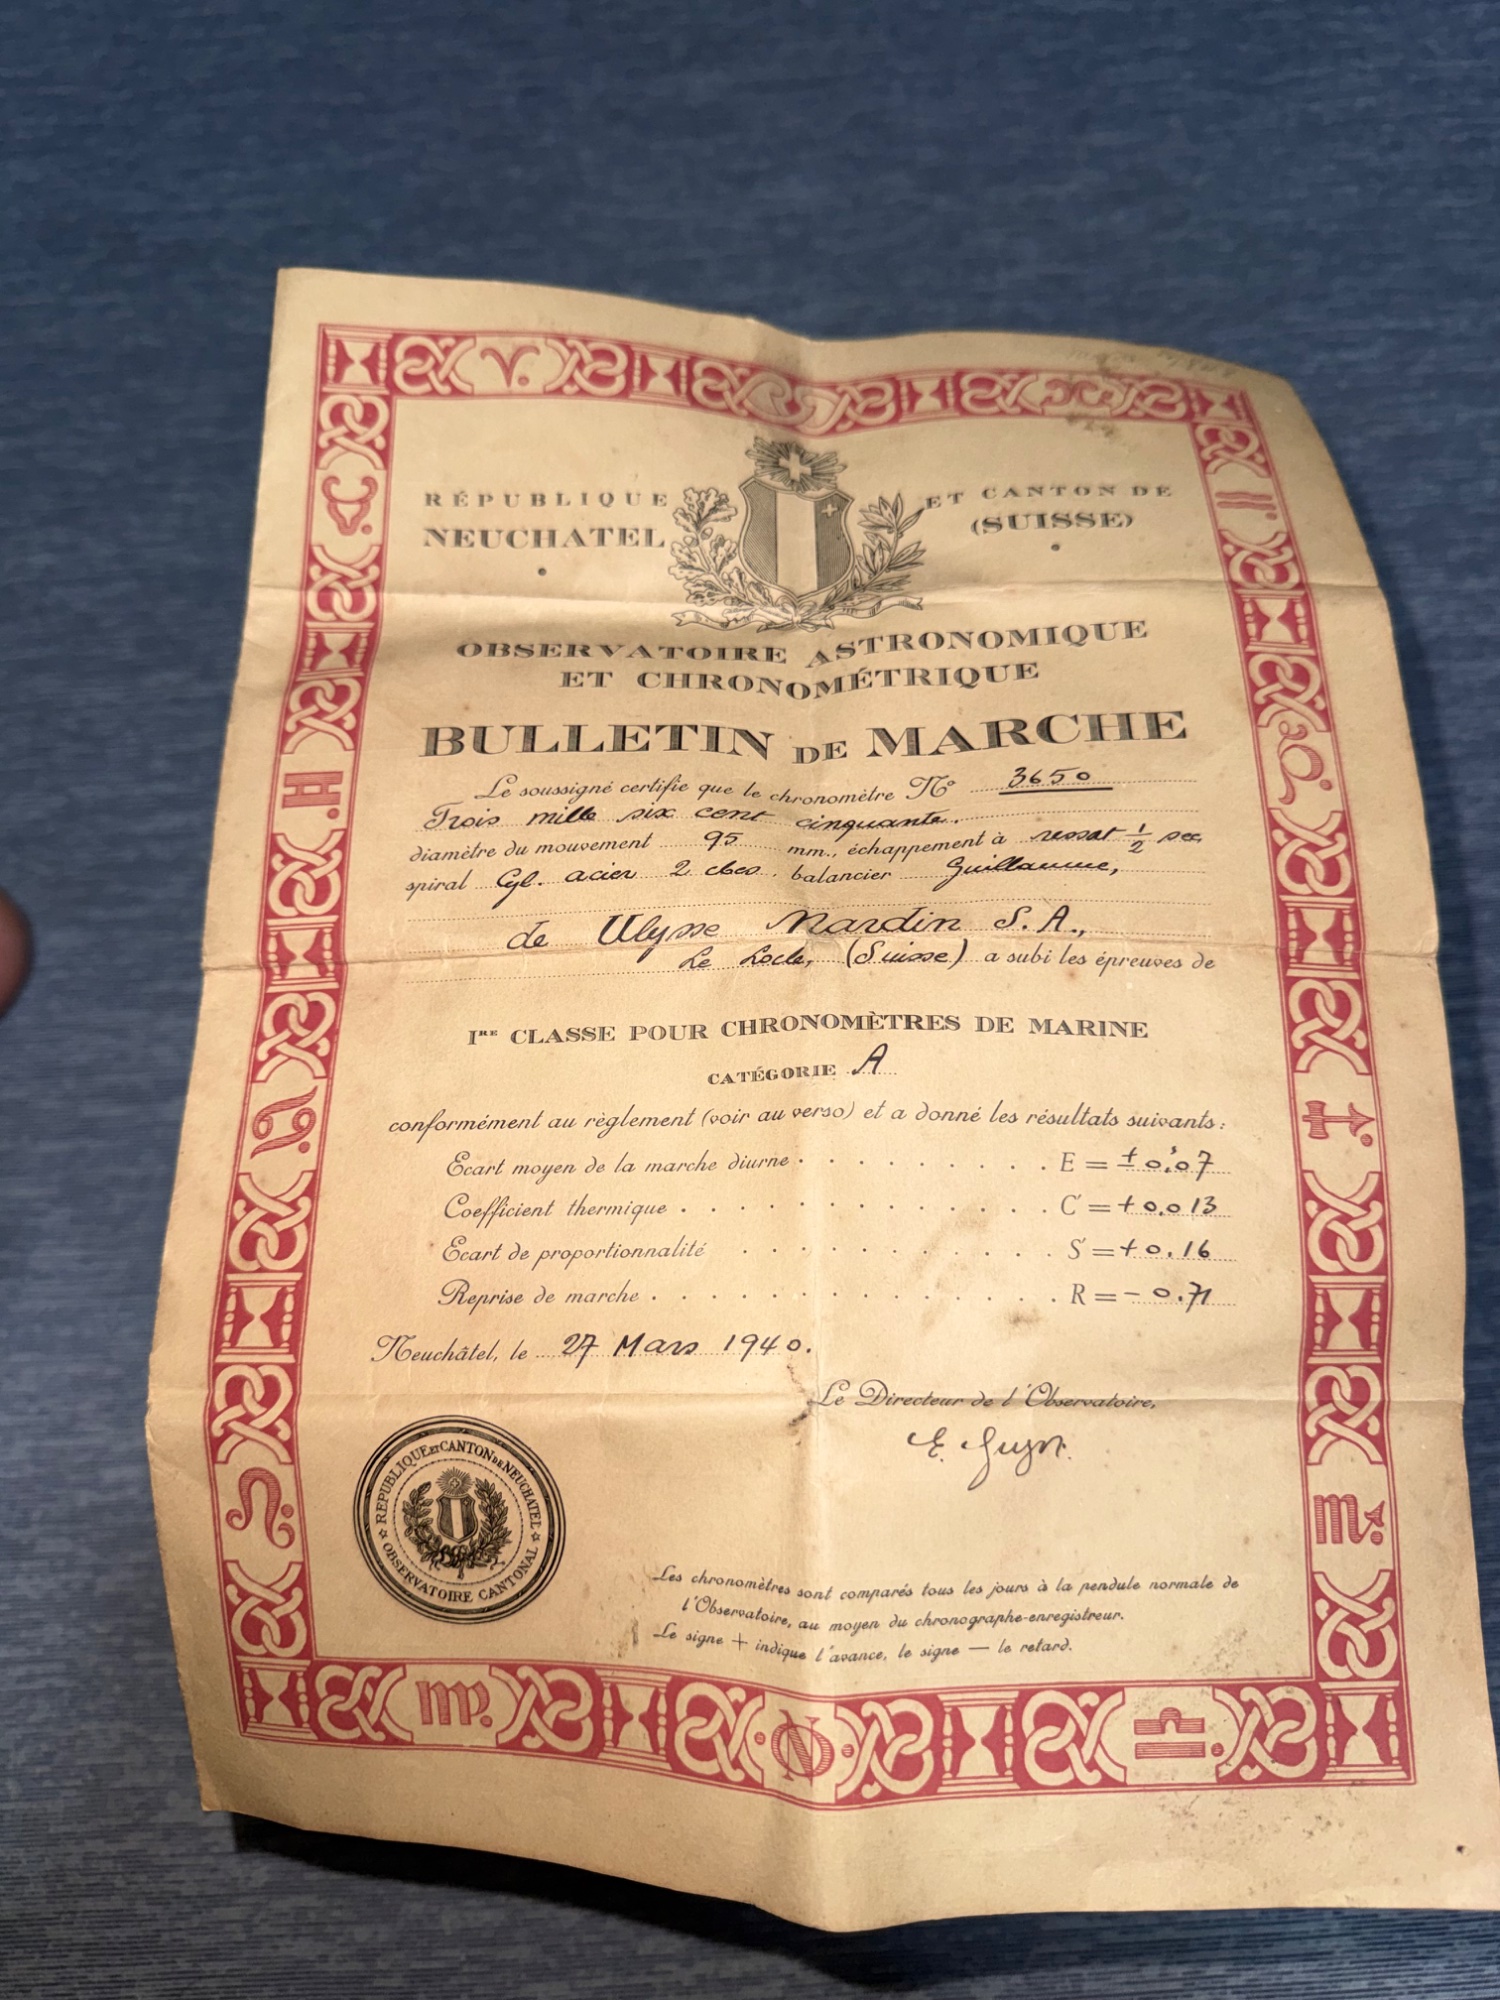 RÉPUBLIQUE ET CANTON DE
NEUCHATEL (SUISSE)
OBSERVATOIRE ASTRONOMIQUE
ET CHRONOMÉTRIQUE
BULLETIN DE MARCHE
Le soussigné certifie que le chronomètre Nº 3650
Trois mille six cent cinquante.
diamètre du mouvement 95 mm., échappement à ressort 1/2 sec
spiral Cyl. acier 2 cbes. balancier Guillaume,
de Ulysse Nardin S. A.,
Le Locle, (Suisse) a subi les épreuves de
IRE CLASSE POUR CHRONOMÈTRES DE MARINE
CATÉGORIE A
conformément au règlement (voir au verso) et a donné les résultats suivants:
Ecart moyen de la marche diurne . . . . . . . . . E = ± 0,ˢ07
Coefficient thermique . . . . . . . . . . . . C = + 0.013
Ecart de proportionnalité . . . . . . . . . . S = + 0.16
Reprise de marche . . . . . . . . . . . . . R = - 0.71
Neuchâtel, le 27 Mars 1940.
Le Directeur de l'Observatoire,
E. Guyot.
REPUBLIQUE ET CANTON DE NEUCHATEL
OBSERVATOIRE CANTONAL
Les chronomètres sont comparés tous les jours à la pendule normale de
l'Observatoire, au moyen du chronographe-enregistreur.
Le signe + indique l'avance, le signe — le retard.